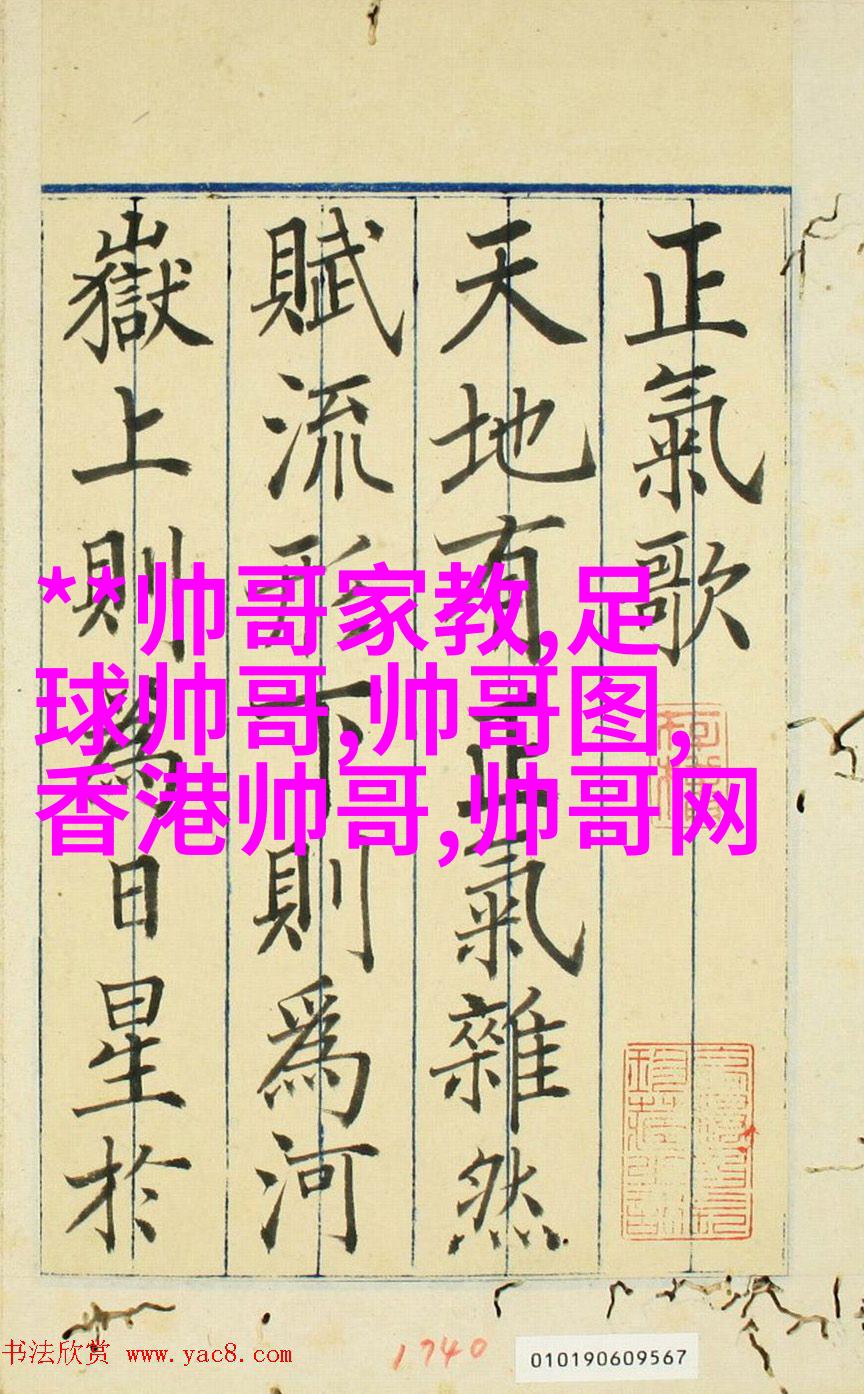 正氣歌
天地有正氣雜然
賦流形下則為河
嶽上則為日星於
**帅哥家教,足
球帅哥,帅哥图,
香港帅哥,帅哥网
书法欣赏 www.yac8.com
1740
010190609567